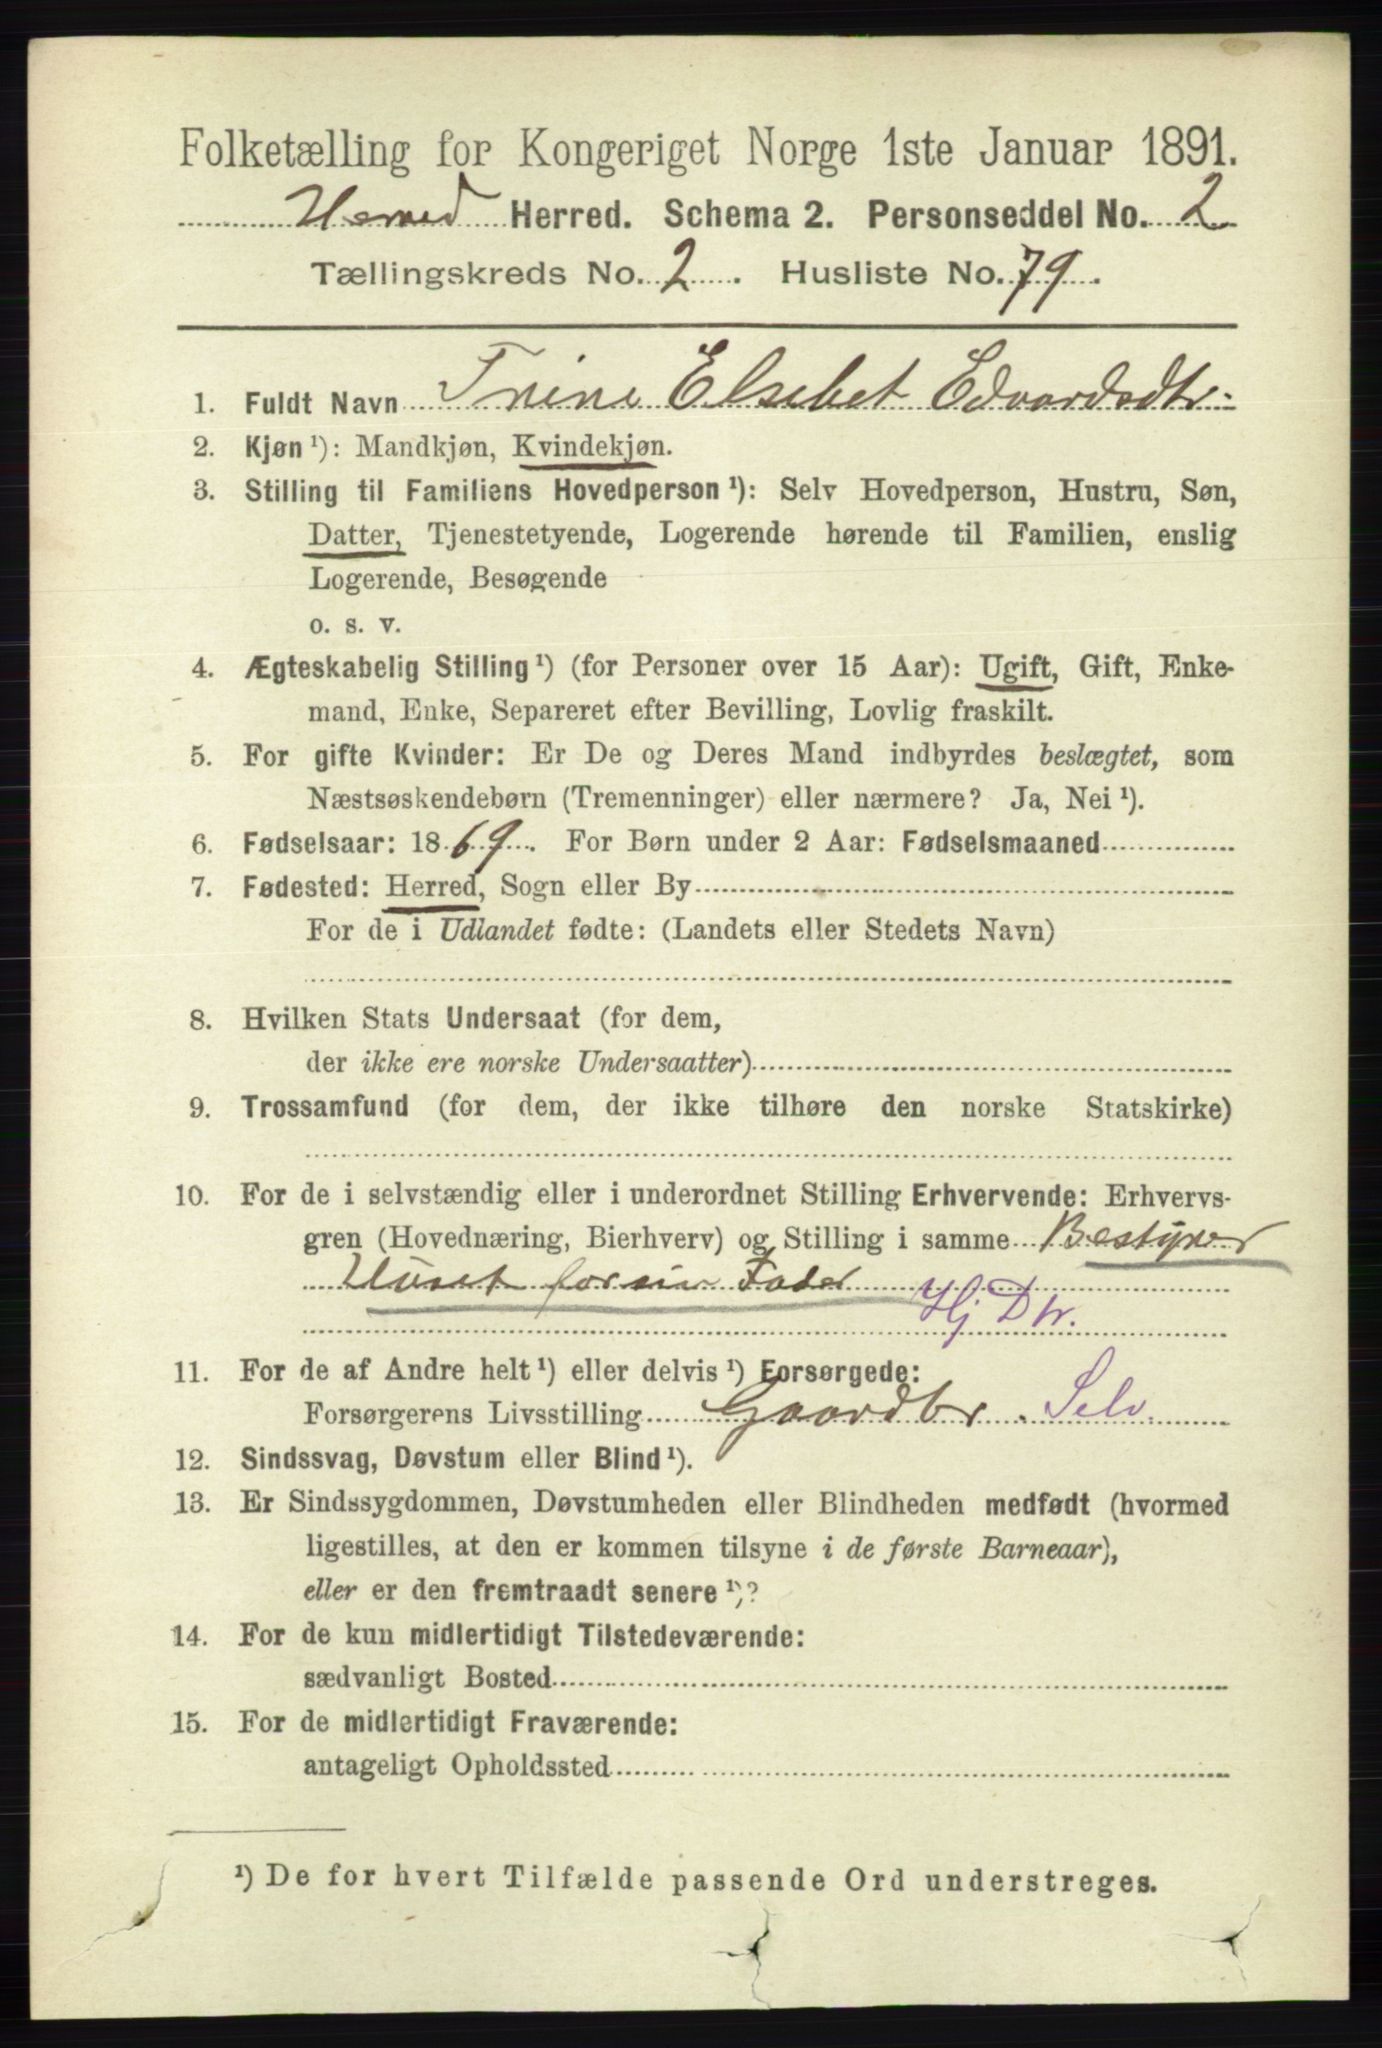 Folketælling for Kongeriget Norge 1ste Januar 1891.
Herred. Schema 2. Personseddel No. 2
Tællingskreds No. 2. Husliste No. 79.
1. Fuldt Navn Trine Elsebet Edvardsdtr.
2. Kjøn ¹): Mandkjøn, Kvindekjøn.
3. Stilling til Familiens Hovedperson ¹): Selv Hovedperson, Hustru, Søn,
Datter, Tjenestetyende, Logerende hørende til Familien, enslig
Logerende, Besøgende
o. s. v.
4. Ægteskabelig Stilling ¹) (for Personer over 15 Aar): Ugift, Gift, Enke-
mand, Enke, Separeret efter Bevilling, Lovlig fraskilt.
5. For gifte Kvinder: Er De og Deres Mand indbyrdes beslægtet, som
Næstsøskendebørn (Tremenninger) eller nærmere? Ja, Nei ¹).
6. Fødselsaar: 1869. For Børn under 2 Aar: Fødselsmaaned
7. Fødested: Herred, Sogn eller By
For de i Udlandet fødte: (Landets eller Stedets Navn)
8. Hvilken Stats Undersaat (for dem,
der ikke ere norske Undersaatter)
9. Trossamfund (for dem, der ikke tilhøre den norske Statskirke)
10. For de i selvstændig eller i underordnet Stilling Erhvervende: Erhvervs-
gren (Hovednæring, Bierhverv) og Stilling i samme Bestyrer
Huset for sin Fader
Hj Dtr.
11. For de af Andre helt ¹) eller delvis ¹) Forsørgede:
Forsørgerens Livsstilling Gaardbr. Selv.
12. Sindssvag, Døvstum eller Blind ¹).
13. Er Sindssygdommen, Døvstumheden eller Blindheden medfødt (hvormed
ligestilles, at den er kommen tilsyne i de første Barneaar),
eller er den fremtraadt senere ¹)?
14. For de kun midlertidigt Tilstedeværende:
sædvanligt Bosted
15. For de midlertidigt Fraværende:
antageligt Opholdssted
¹) De for hvert Tilfælde passende Ord understreges.